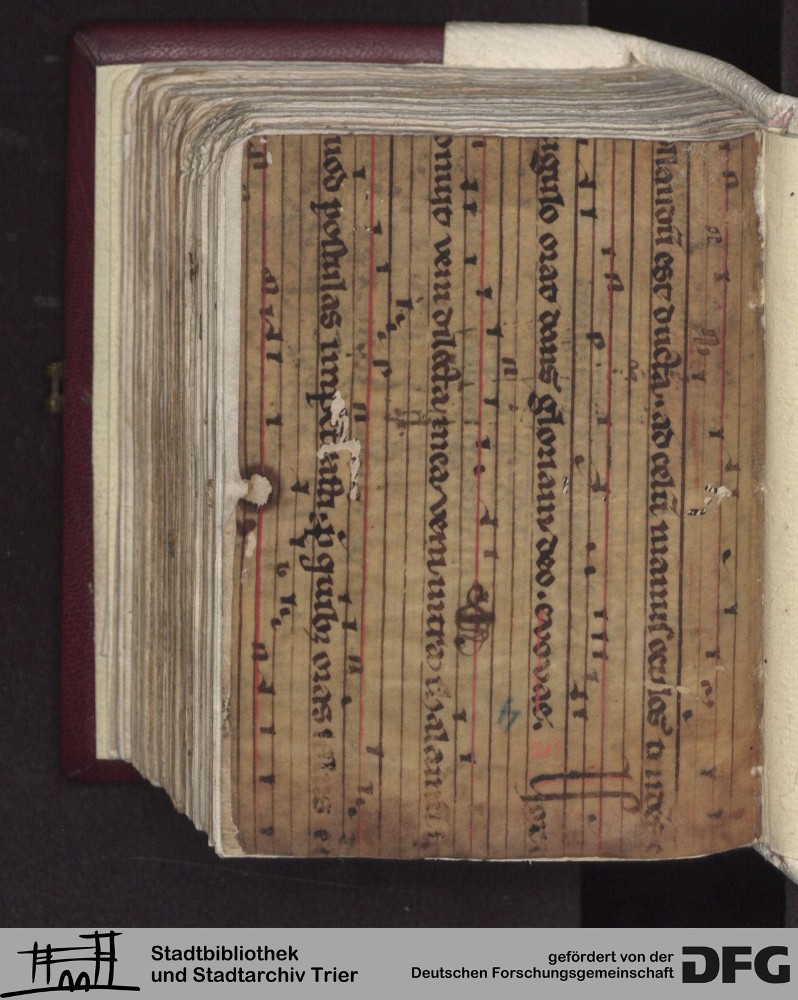 est ducta. ad celū manus oculos
gulo orat dans gloriam deo. evovae.
veni dilecta mea veni intra thalamū
uod postulas impetrasti. p quibꝫ oras
4
Stadtbibliothek
und Stadtarchiv Trier
gefördert von der
Deutschen Forschungsgemeinschaft
DFG